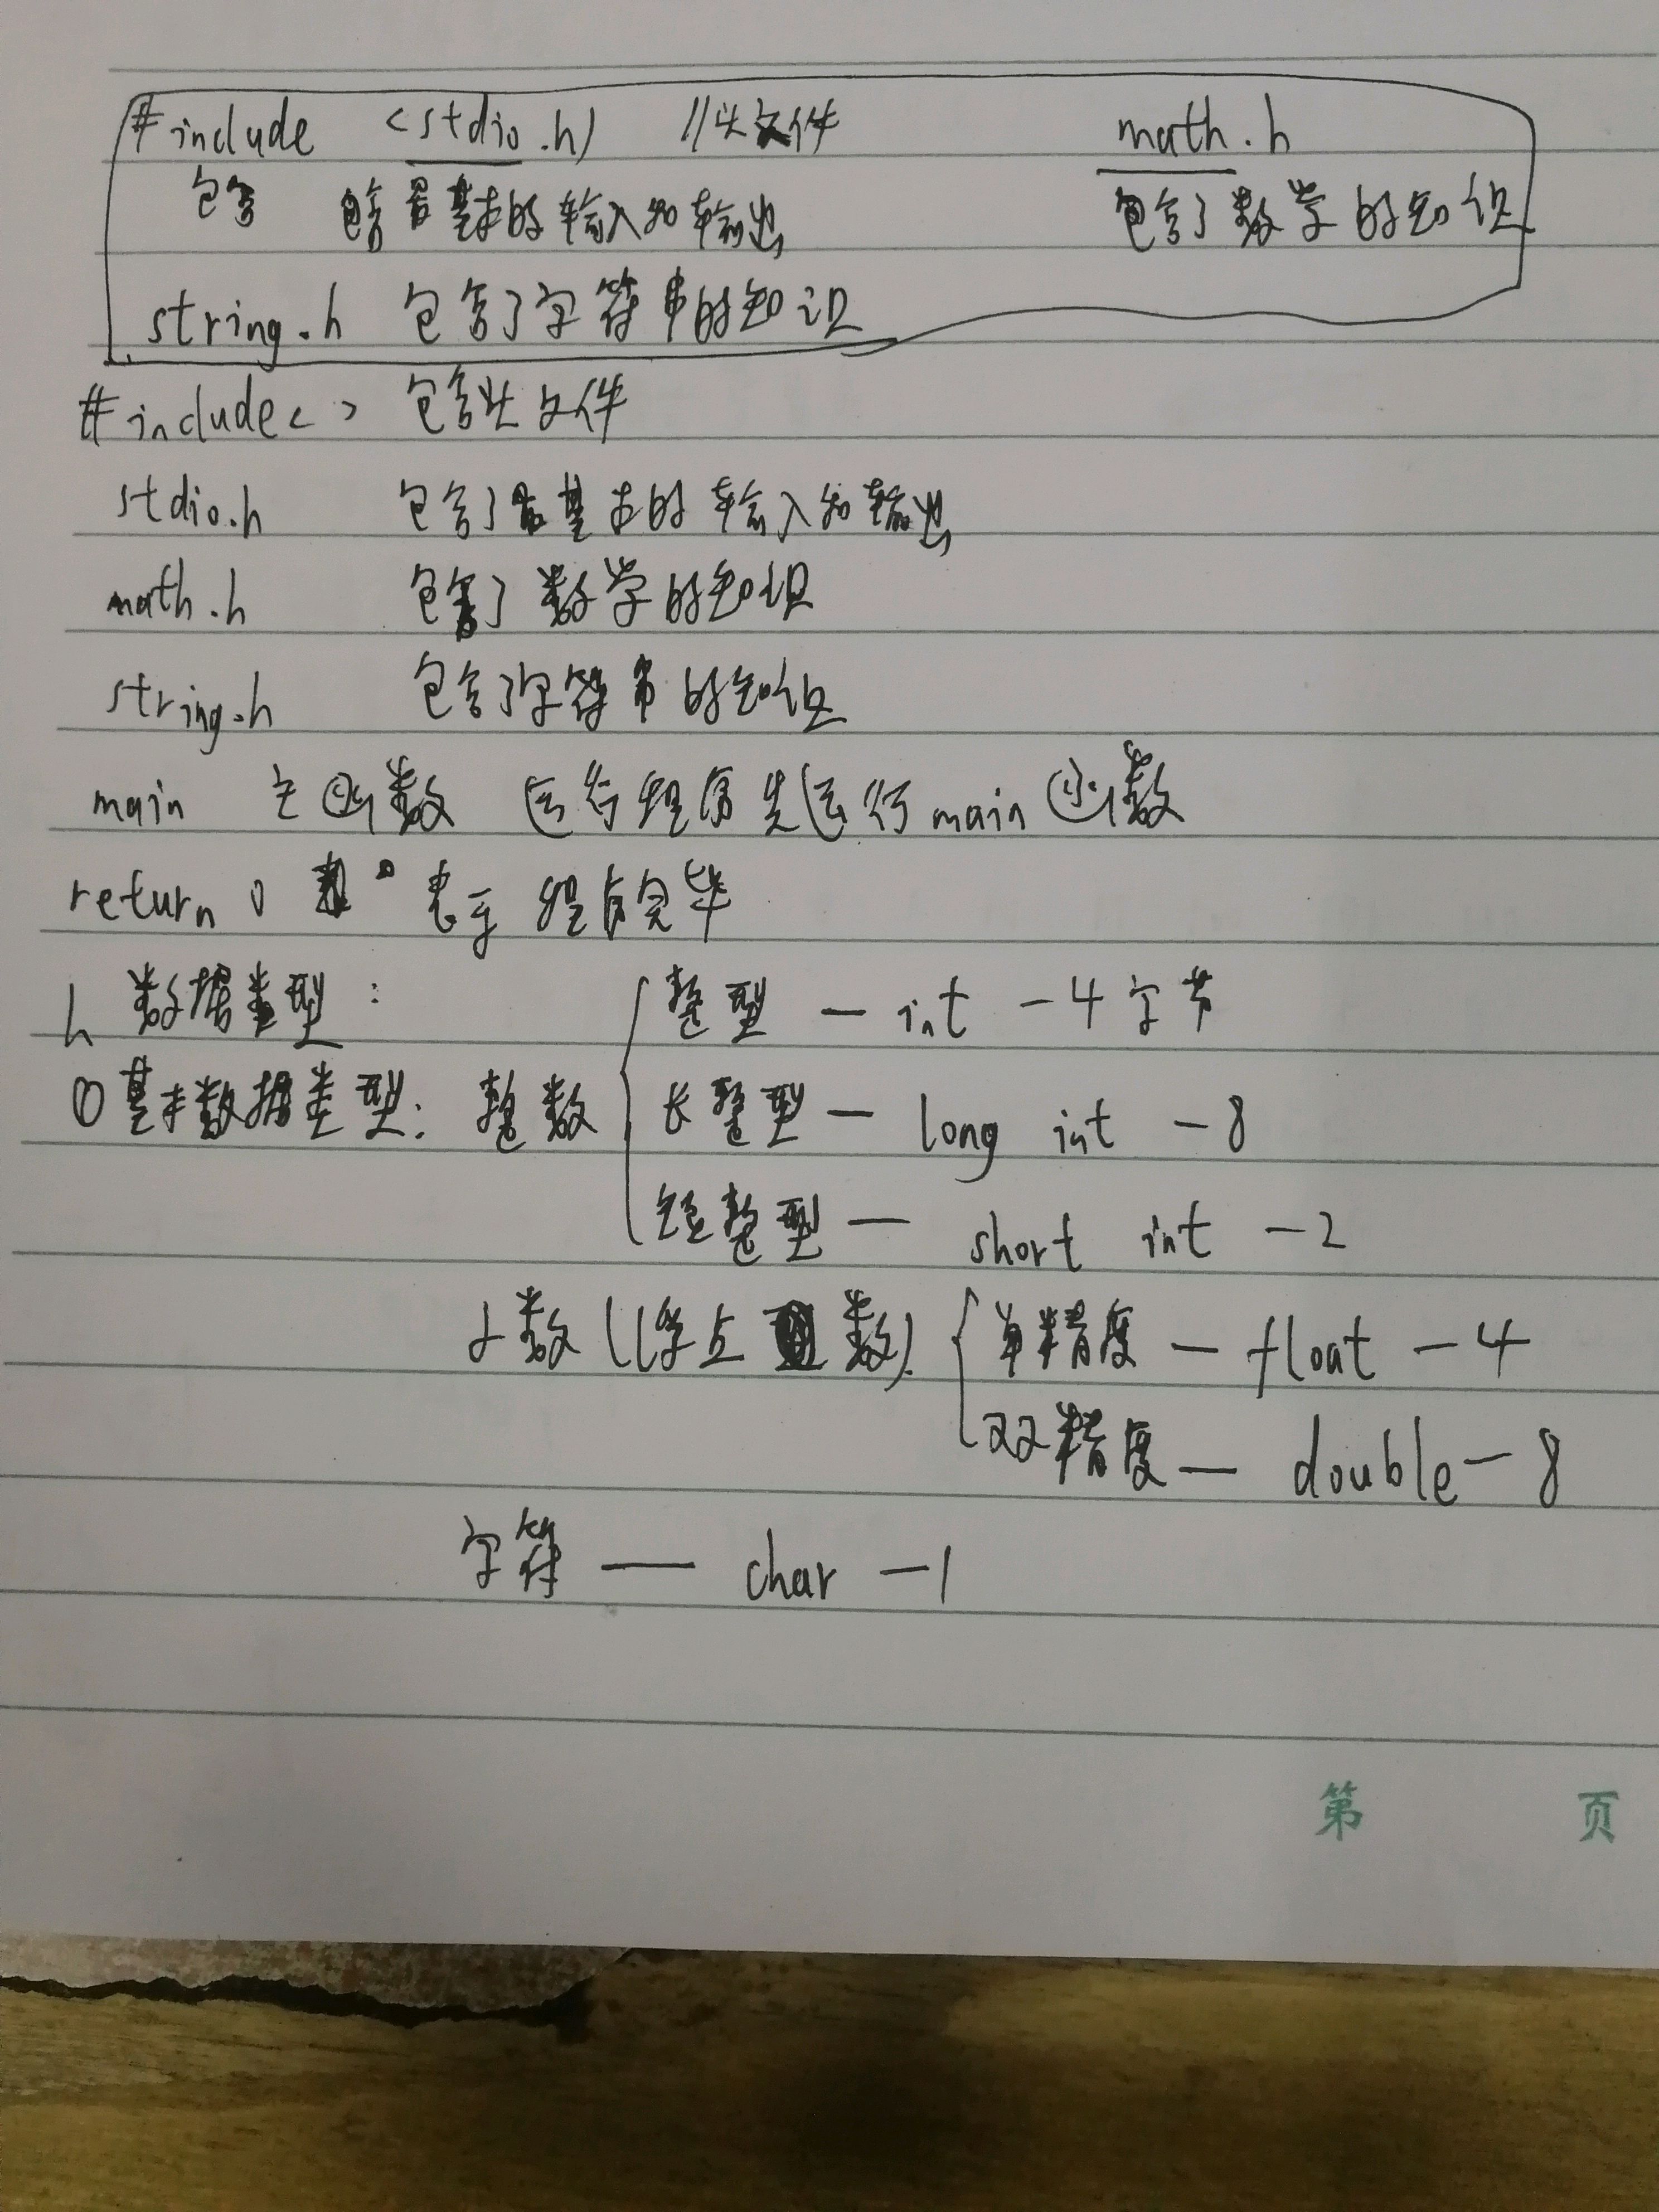 #include <stdio.h) //头文件 math.h
包含 包含最基本的输入和输出 包含了数学的知识
string.h 包含了字符串的知识
#include< > 包含头文件
stdio.h 包含了最基本的输入和输出
math.h 包含了数学的知识
string.h 包含了字符串的知识
main 主函数 运行程序先运行main函数
return 0 表示程序完毕
数据类型:
整型 — int — 4字节
①基本数据类型: 整数
长整型 — long int — 8
短整型 — short int — 2
小数(浮点数) 单精度 — float — 4
双精度 — double — 8
字符 — char — 1
第 页